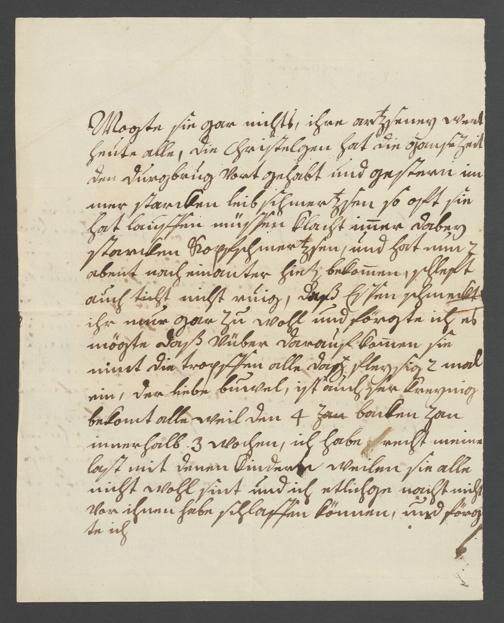 Mogte sie gar nichts, ihre artzeney wert
heute alle, die Christelgen hat die gantze Zeit
den durgbrug vort gehabt und gestern im
mer starcken leib schmertzen so oft sie
hat lauffen müssen klacht immer dabey
starcken Kopfschmertzen, und hat nun 2
abent nacheinanter hietz bekommen, schleft
auch ticht nicht ruig, daß Essen schmeckt
ihr nur gar zu wohl und förgte ich es
mögte daß vüber darauf komen sie
nimt die tropffen alle dag fleysig 2 mal
ein, der liebe buwel, ist auch ser kreynig
bekomt alle weil den 4 backen Zan
innerhalb 3 wochen, ich habe recht meine
last mit denen Kindern weilen sie alle
nicht wohl sint und ich etlichge nacht nicht
vor ihnen habe schlaffen können, und förg
te ich